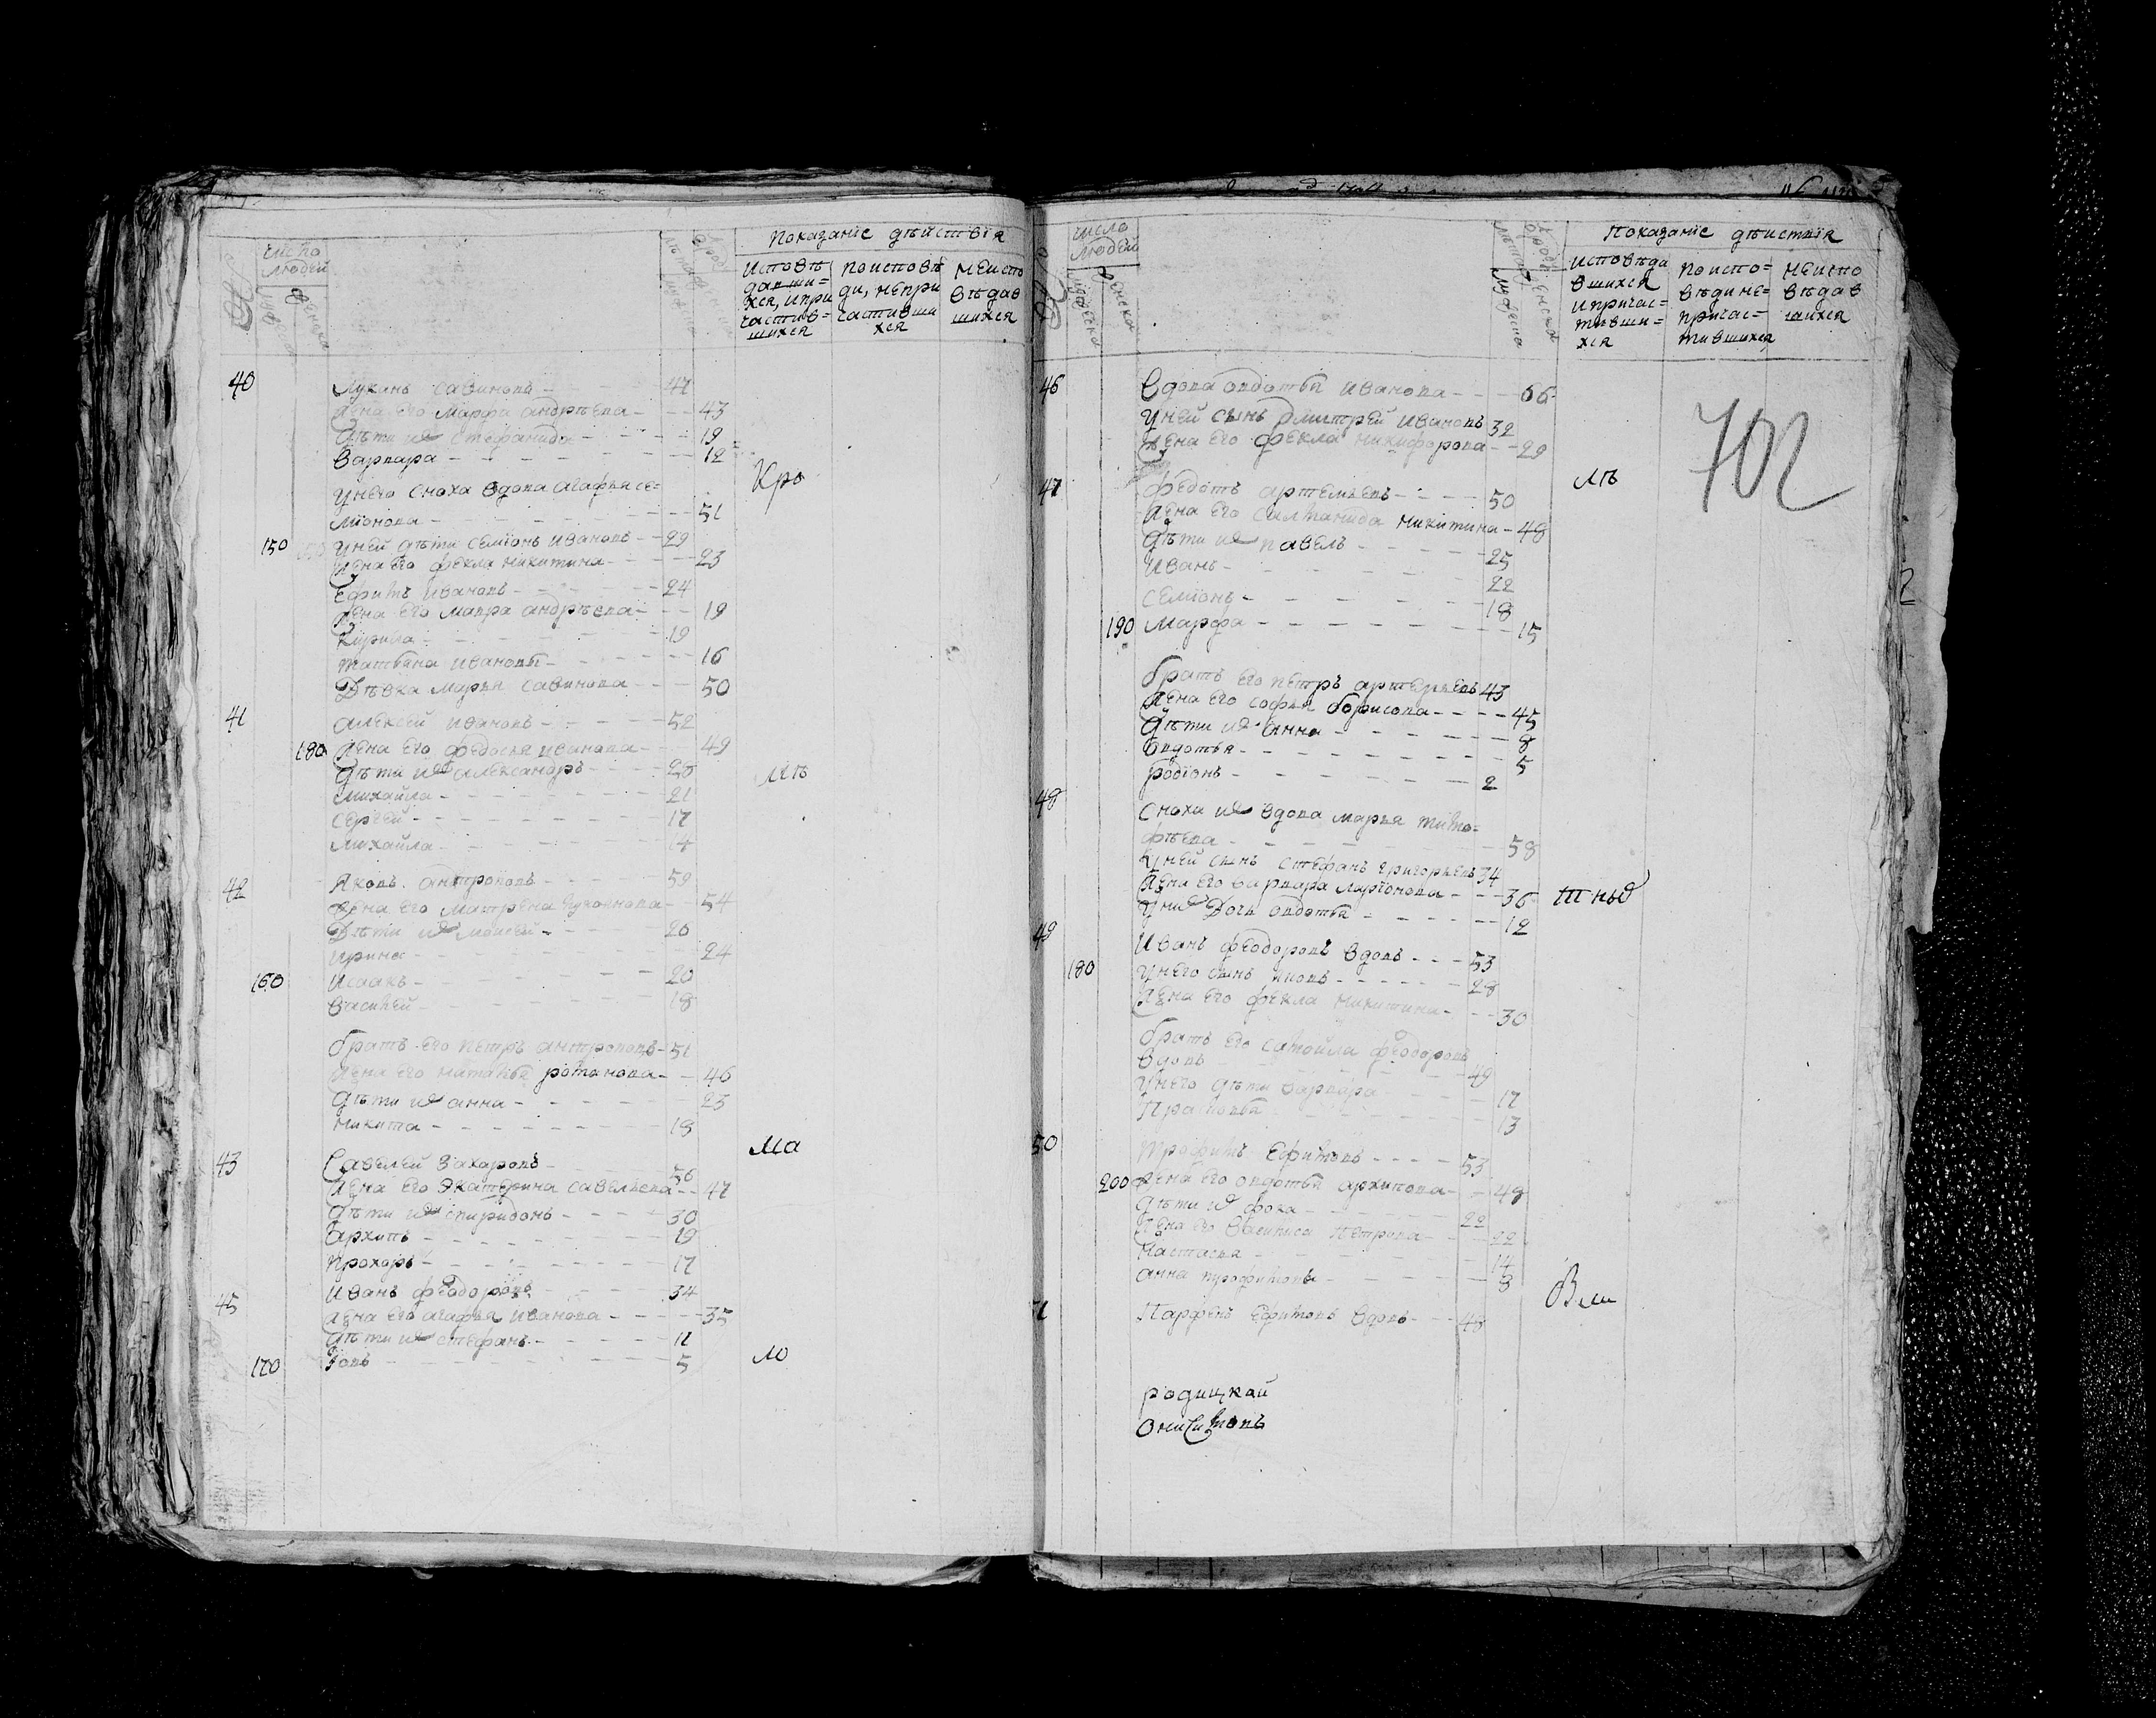 число людей
Показанїе дѣиствїя
Исповѣдавшихся, ипричастившихся
поисповѣди, непричастившихся
неисповѣдавшихся
40 Луканъ савиновъ - 47
жена его Марфа андрѣева - 43
дѣти их стефанида - 19
варвара - 12
унего сноха вдова агафья се=
мїонова - 51
Кро
150 уней дѣти семїонъ ивановъ - 29
жена его фекла никитина - 23
ефимъ ивановъ - 24
жена его мавра андрѣева - 19
кирила - 19
татьяна ивановы - 16
Дѣвка марья савинова - 50
41 алексей ивановъ - 52
180 жена его федосья иванова - 49
дѣти их александръ - 28
михайла - 21
сергей - 17
михайла - 14
мѣ
42 Яковъ антроповъ - 59
жена его матрена - 54
Дѣти их моисей - 26
ирина - 24
160 Исаакъ - 20
василей - 18
братъ его петръ антроповъ - 51
жена его наталья романова - 46
дѣти их анна - 23
никита - 18
ма
43 Савелей Захаровъ - 56
жена его екатерина савельева - 47
дѣти их спиридонъ - 30
архипъ - 19
прохоръ - 17
45 иванъ феодоровъ - 34
жена его агафья иванова - 35
дѣти их стефанъ - 11
170 Іовъ - 5
мо
число людей
Показанїе дѣиствїя
исповѣдавшихся ипричастившихся
поисповѣдине=причастившихся
неисповѣдавшихся
702
46 Вдова овдотья иванова - 66
уней сынъ дмитрей ивановъ 32
жена его фекла никифорова - 29
47 федотъ артемьевъ - 50
лѣ
жена его никитина - 48
дѣти их павелъ - 25
иванъ - 22
семїонъ - 18
190 марфа - 15
братъ его петръ артемьевъ 43
жена его софья борисова - 45
дѣти их анна - 8
овдотья - 5
родїонъ - 2
48 сноха их вдова марья тимо=
фѣева - 58
уней сынъ стефанъ григорьевъ 34
жена его варвара ларїонова - 36
тныя
уних дочь овдотья - 12
49 иванъ феодоровъ вдовъ - 53
180 унего сынъ яковъ - 28
жена его фекла никитина - 30
братъ его самойла феодоровъ
вдовъ - 49
унего дѣти варвара - 17
Прасковья - 13
50 трофимъ ефимовъ - 53
200 жена его овдотья архипова - 48
дѣти их фока - 22
жена его василиса петрова - 22
настасья - 14
анна трофимовы - 8
Вли
парфенъ ефимовъ вдовъ - 48
родицкой
Онисимовъ